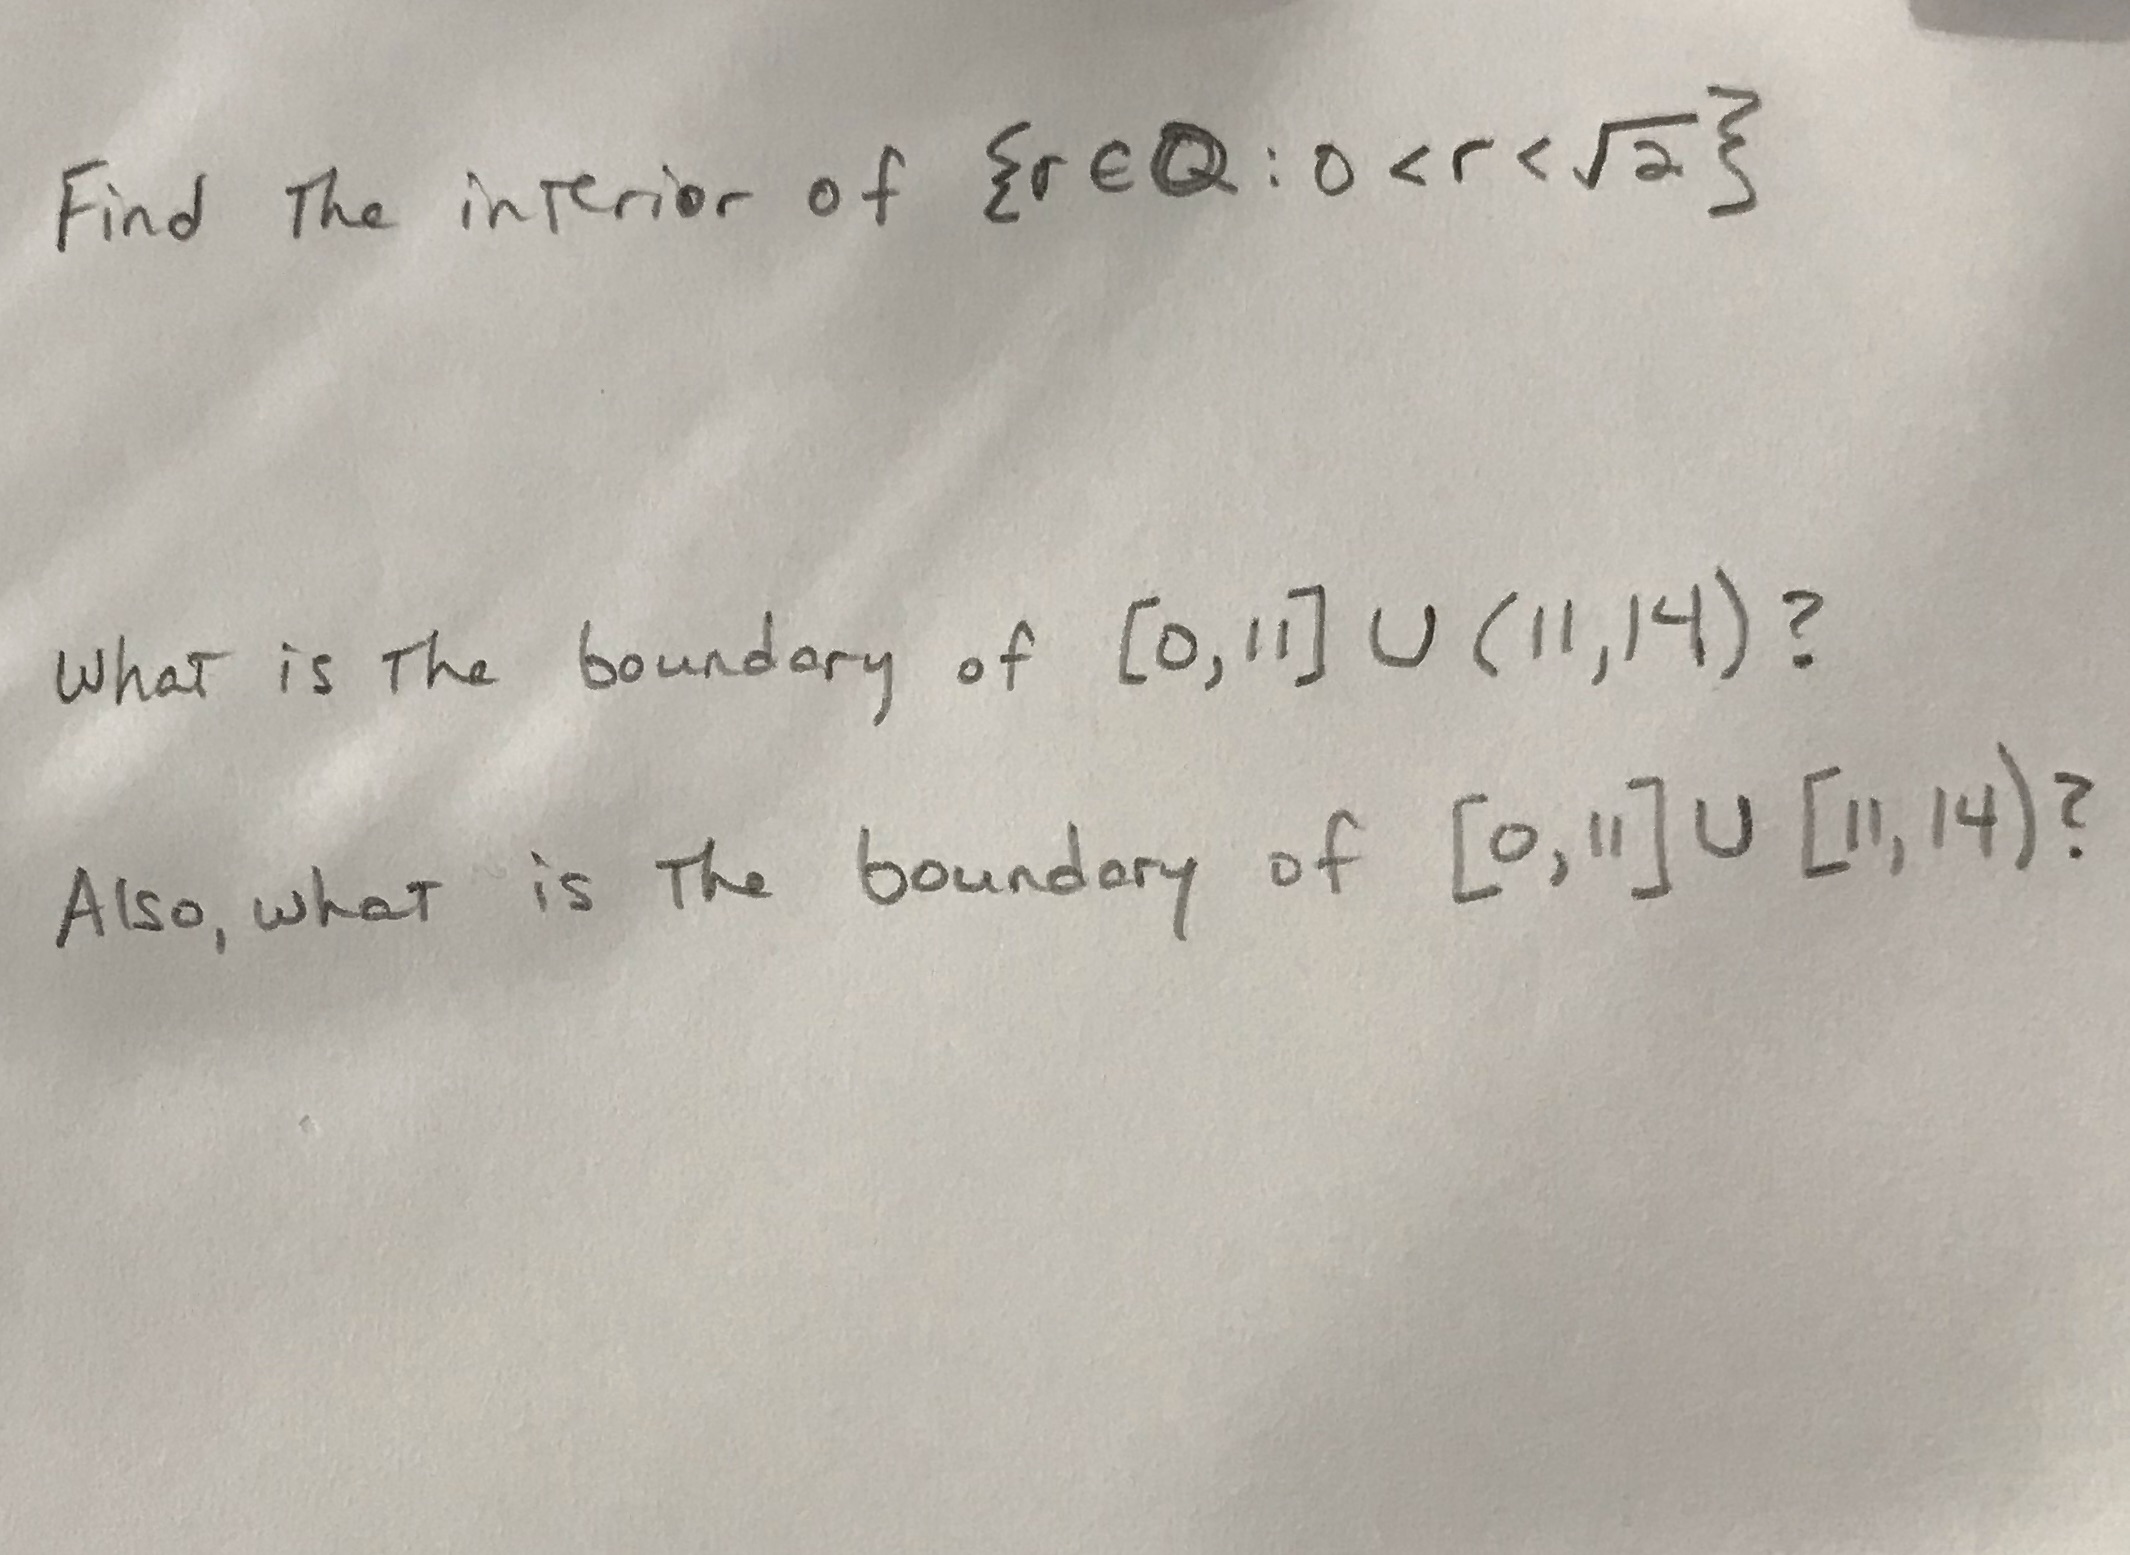 Find the interior of {r∈ℚ : 0<r<√2}
What is the boundary of [0,11] ∪ (11,14)?
Also, what is the boundary of [0,11] ∪ [11,14)?